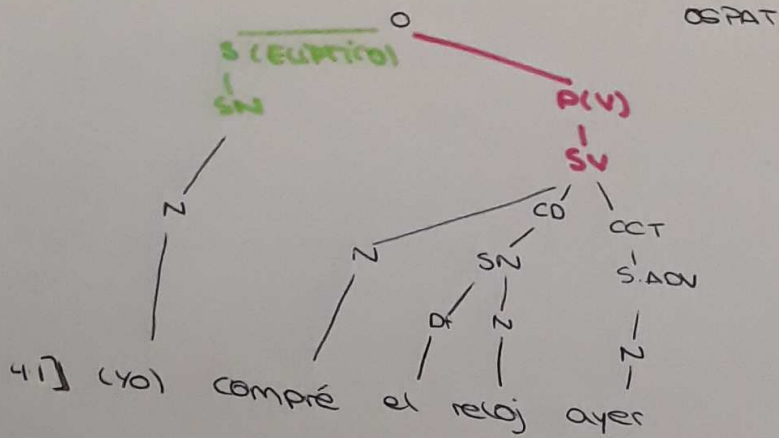 O
OSPAT
S (ELIPTICO)
SN
P(V)
SV
N
CD
CCT
N
SN
S.ADV
Dt
N
N
4.1] (YO) compré el reloj ayer